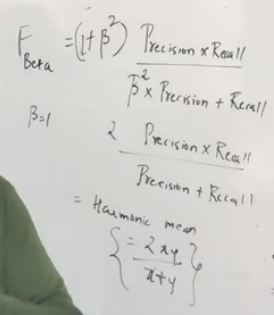 F Beta = (1+β²) Precision x Recall
β² x Precision + Recall
β=1
2 Precision x Recall
Precision + Recall
= Harmonic mean
{ = 2xy
x+y }